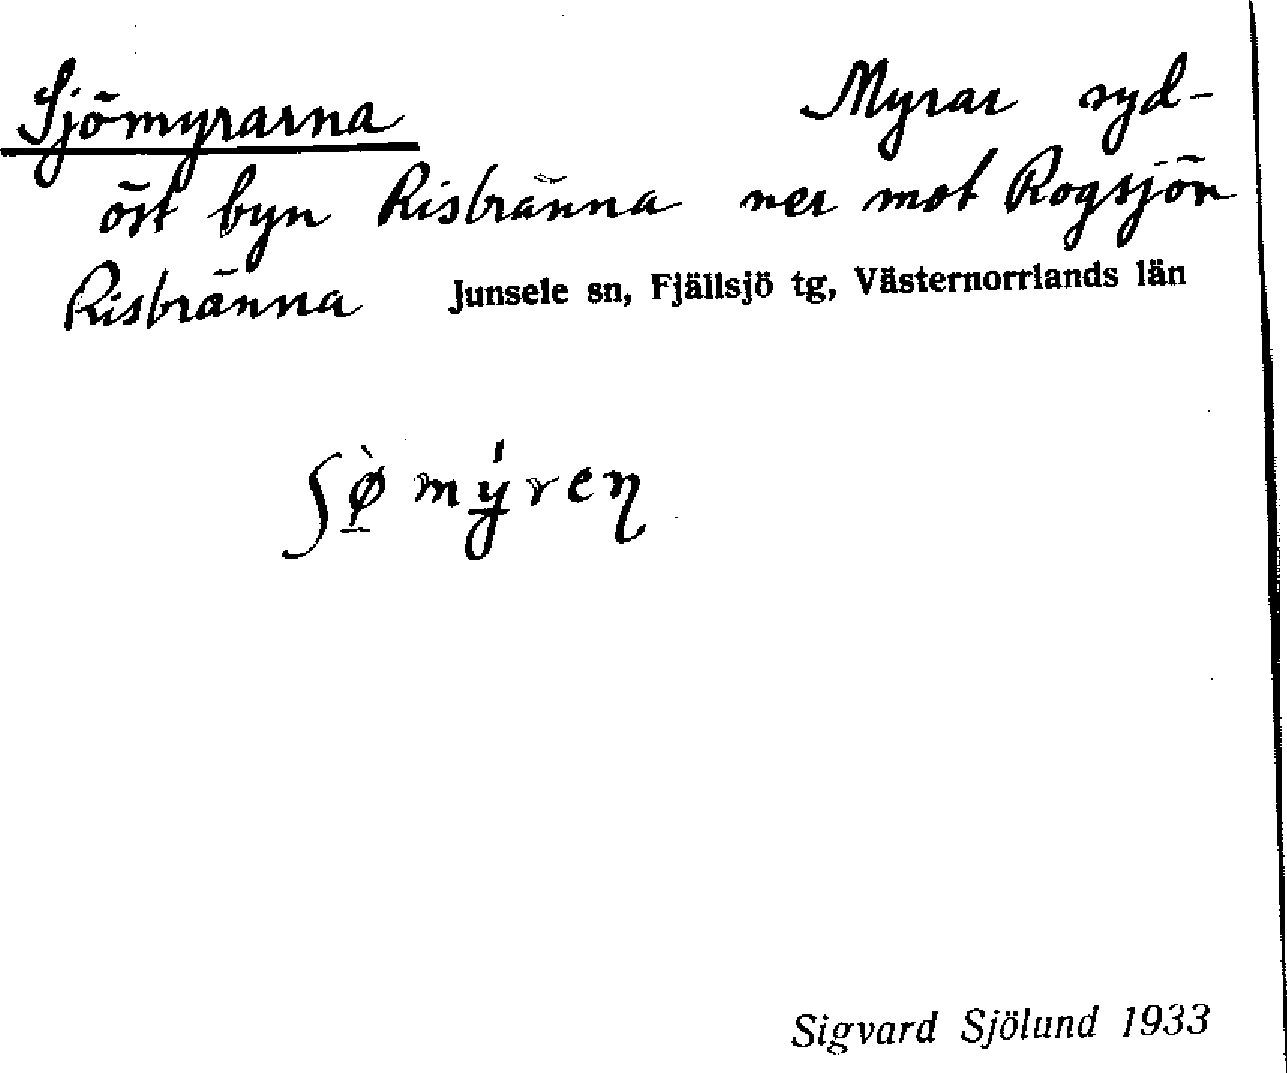 Sjömyrarna Myrar syd-
öst byn Risbränna ner mot Rogsjön
Risbränna Junsele sn, Fjällsjö tg, Västernorrlands län
ʃø̀mýreŋ
Sigvard Sjölund 1933